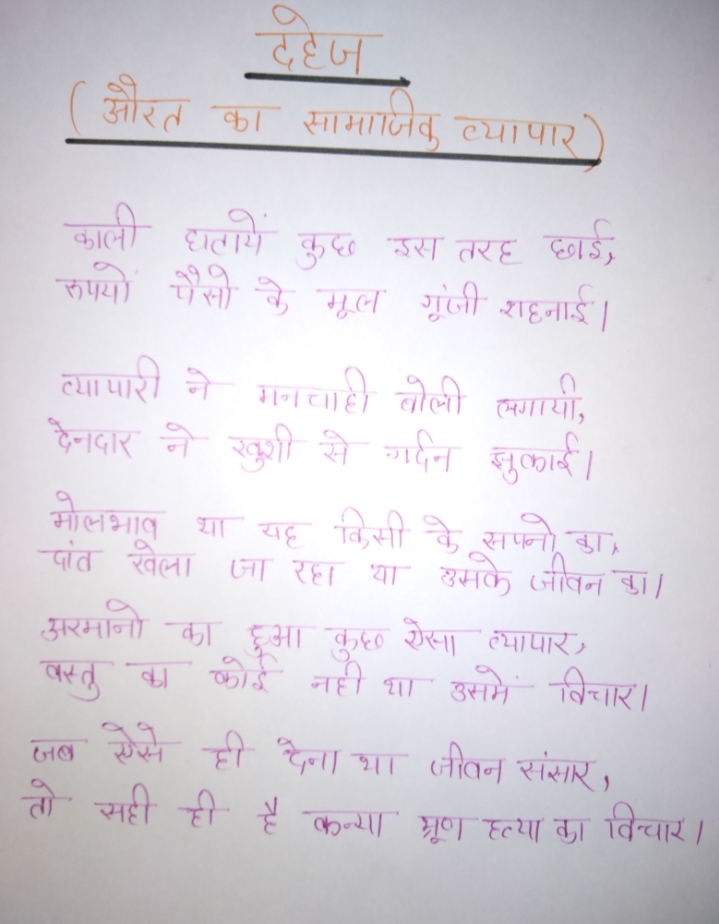 दहेज
(औरत का सामाजिक व्यापार)
काली घटायें कुछ इस तरह छाई,
रुपयों पैसो के मूल गूंजी शहनाई।
व्यापारी ने मनचाही बोली लगायी,
देनदार ने खुशी से गर्दन झुकाई।
मोलभाव था यह किसी के सपनो का,
दांत खेला जा रहा था उसके जीवन का।
अरमानो का हुआ कुछ ऐसा व्यापार,
वस्तु का कोई नही था उसमें विचार।
जब ऐसे ही देना था जीवन संसार,
तो सही ही है कन्या भ्रूण हत्या का विचार।